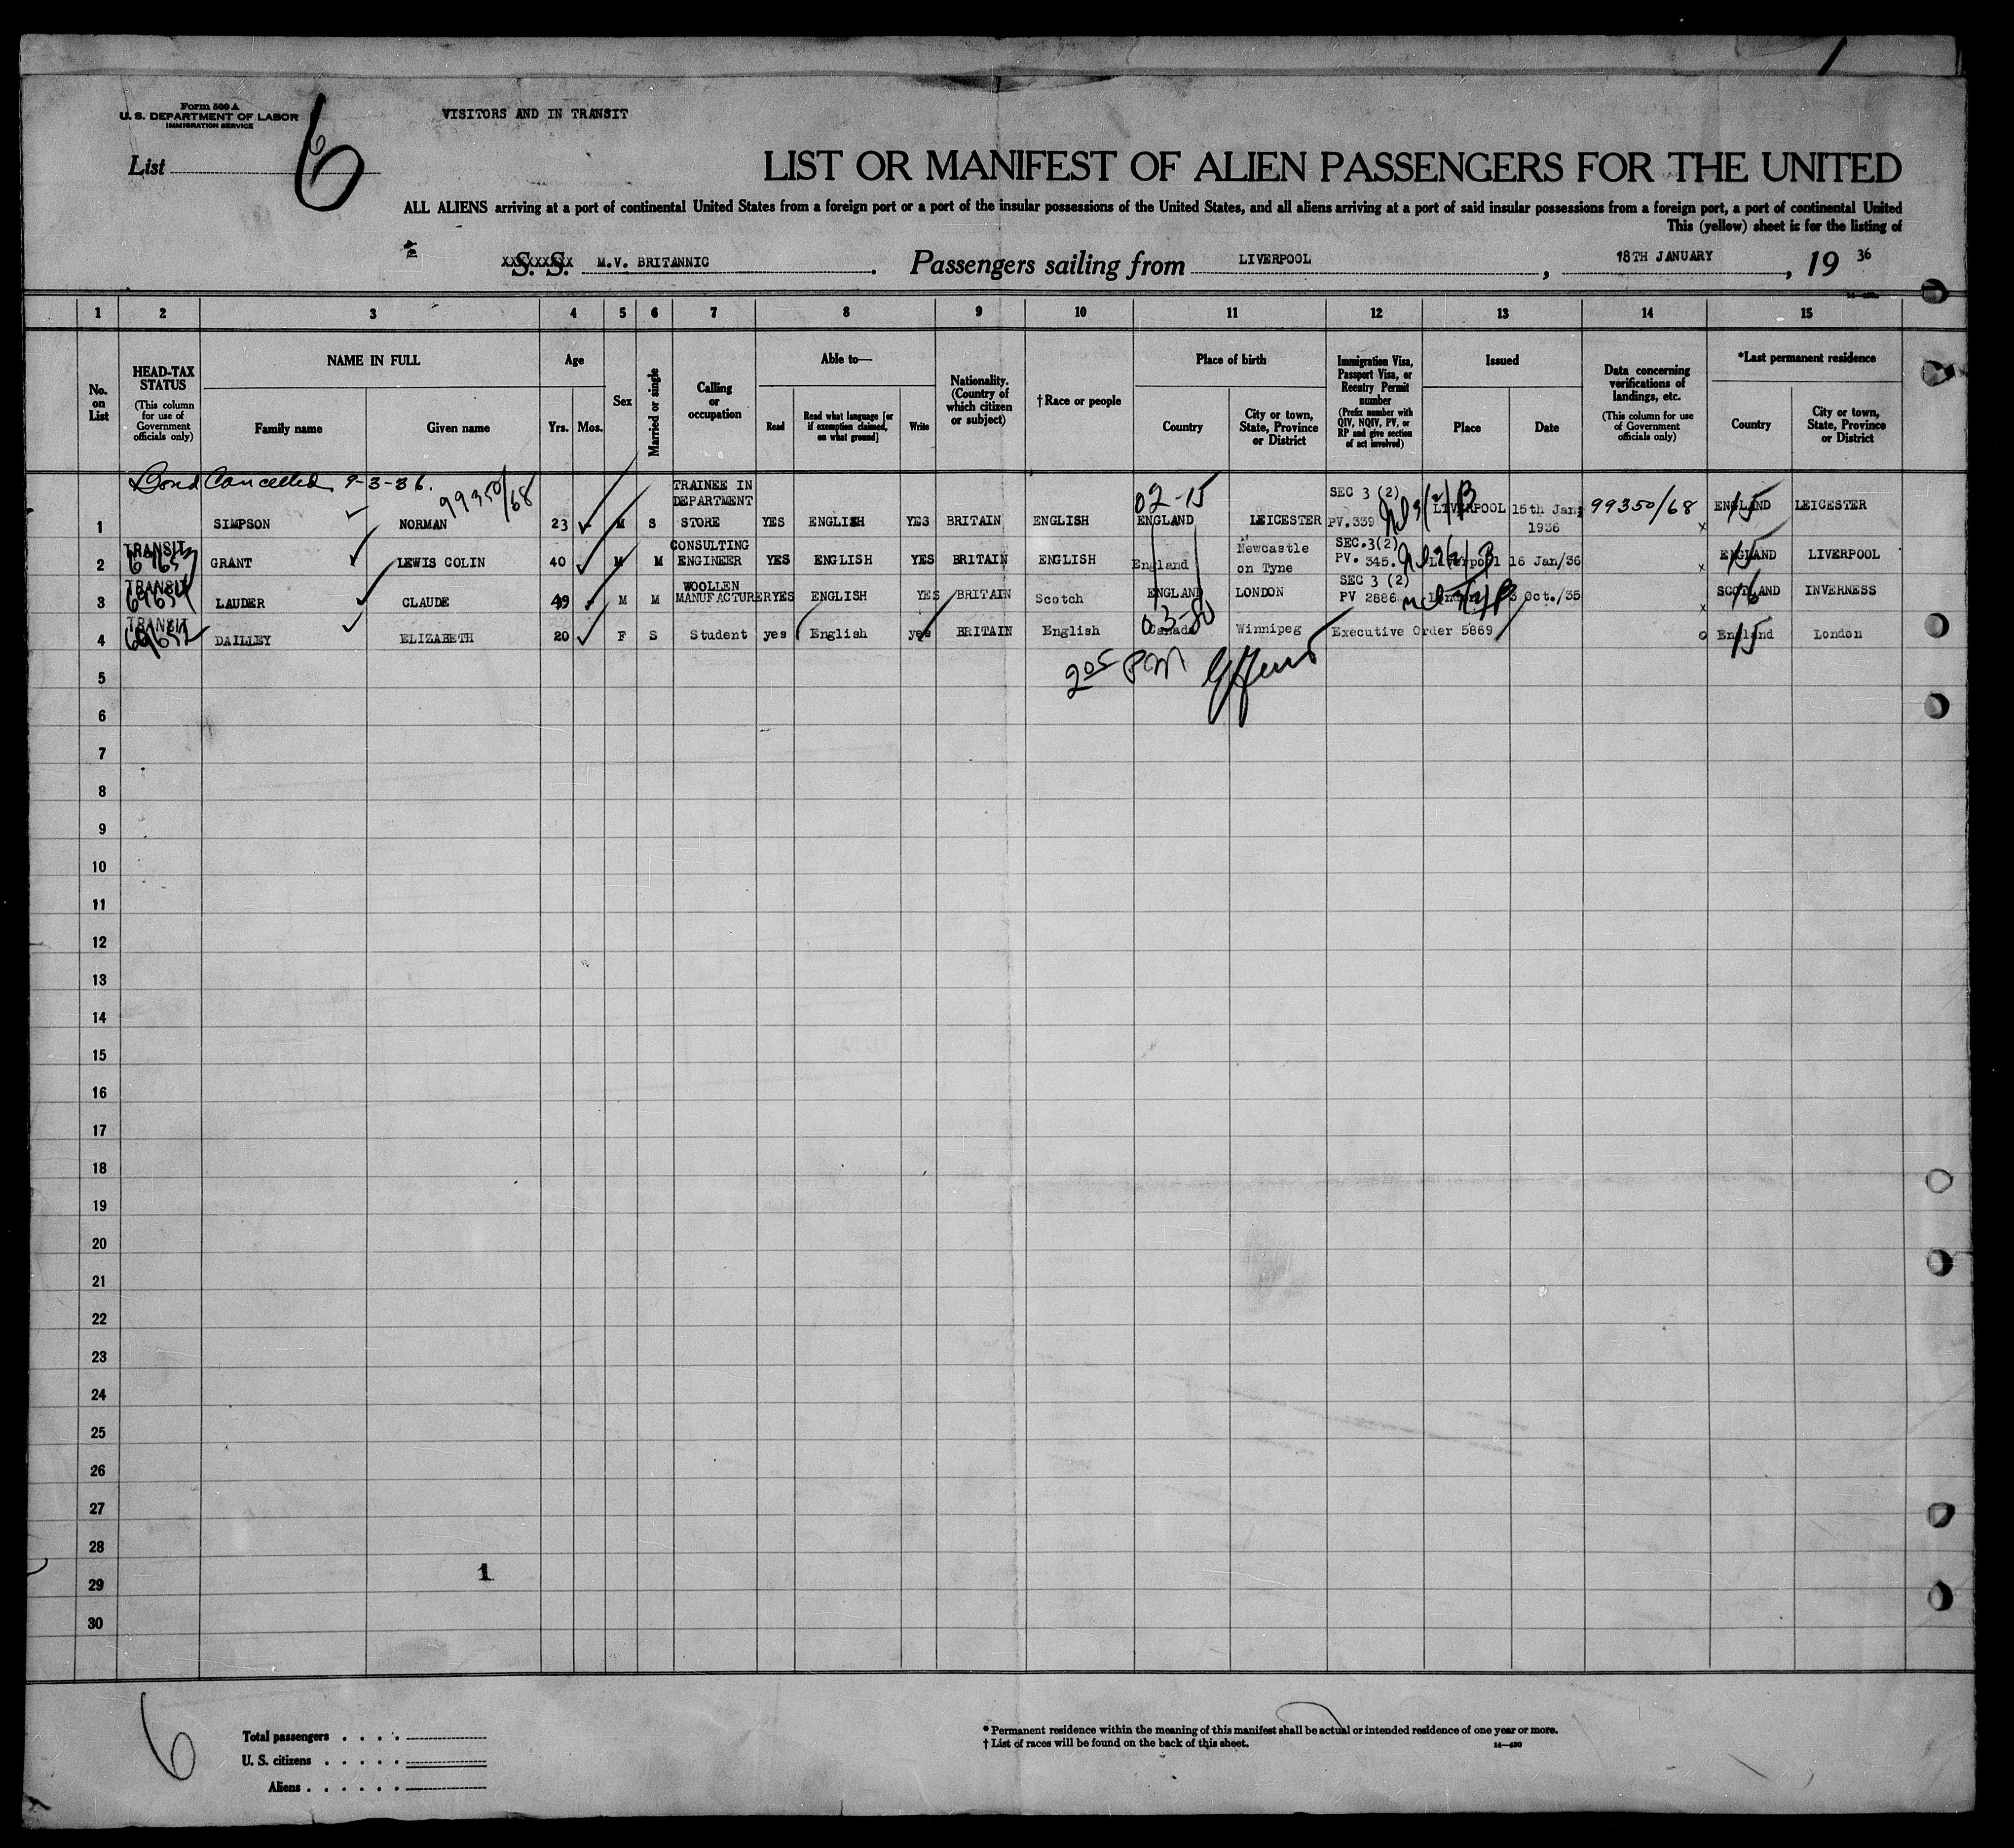 Form 500 A
U. S. DEPARTMENT OF LABOR
IMMIGRATION SERVICE
VISITORS AND IN TRANSIT
List 6
LIST OR MANIFEST OF ALIEN PASSENGERS FOR THE UNITED
ALL ALIENS arriving at a port of continental United States from a foreign port or a port of the insular possessions of the United States, and all aliens arriving at a port of said insular possessions from a foreign port, a port of continental United
This (yellow) sheet is for the listing of
S. S. M.V. BRITANNIC. Passengers sailing from LIVERPOOL, 18TH JANUARY, 19 36
1 2 3 4 5 6 7 8 9 10 11 12 13 14 15
No. on List
HEAD-TAX STATUS
(This column for use of Government officials only)
NAME IN FULL
Family name
Given name
Age
Yrs. Mos.
Sex
Married or single
Calling or occupation
Able to—
Read
Read what language [or if exemption claimed, on what ground]
Write
Nationality. (Country of which citizen or subject)
†Race or people
Place of birth
Country
City or town, State, Province or District
Immigration Visa, Passport Visa, or Reentry Permit number
(Prefix number with QIV, NQIV, PV, or RP and give section of act involved)
Issued
Place
Date
Data concerning verifications of landings, etc.
(This column for use of Government officials only)
*Last permanent residence
Country
City or town, State, Province or District
Bond Cancelled 9-3-36.
99350/68
02-15
1 SIMPSON NORMAN 23 M S TRAINEE IN DEPARTMENT STORE YES ENGLISH YES BRITAIN ENGLISH ENGLAND LEICESTER SEC 3 (2) PV.339 LIVERPOOL 15th Jan; 1936 99350/68 ENGLAND 15 LEICESTER
2 TRANSIT GRANT LEWIS COLIN 40 M M CONSULTING ENGINEER YES ENGLISH YES BRITAIN ENGLISH England Newcastle on Tyne SEC.3(2) PV. 345. Liverpool 16 Jan/36 x ENGLAND 15 LIVERPOOL
3 TRANSIT LAUDER CLAUDE 49 M M WOOLLEN MANUFACTURER YES ENGLISH YES BRITAIN Scotch ENGLAND LONDON SEC 3 (2) PV 2886 London 3 Oct./35 x SCOTLAND 16 INVERNESS
03-80
4 TRANSIT DAILLEY ELIZABETH 20 F S Student yes English yes BRITAIN English Canada Winnipeg Executive Order 5869 England 15 London
2 05 PM
5
6
7
8
9
10
11
12
13
14
15
16
17
18
19
20
21
22
23
24
25
26
27
28
1
29
30
6
Total passengers . . . .
U. S. citizens . . . . .
Aliens . . . . . .
* Permanent residence within the meaning of this manifest shall be actual or intended residence of one year or more.
† List of races will be found on the back of this sheet.